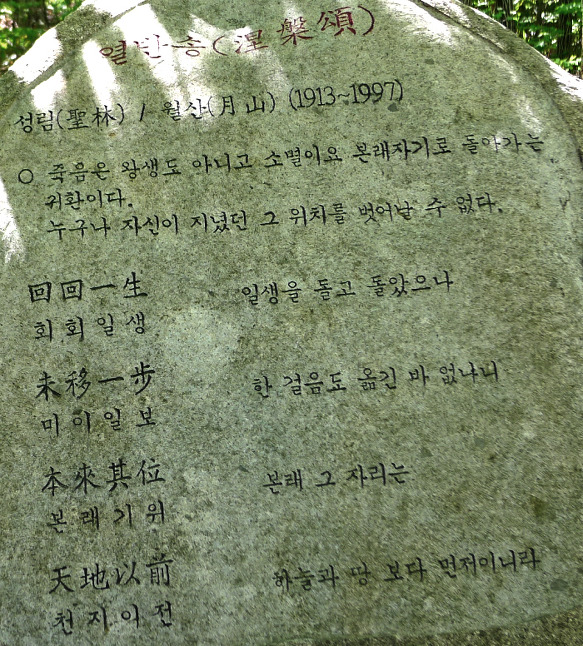 열반송(涅槃頌)
성림(聖林) / 월산(月山) (1913~1997)
○ 죽음은 왕생도 아니고 소멸이요 본래자기로 돌아가는
귀환이다.
누구나 자신이 지녔던 그 위치를 벗어날 수 없다.
回回一生 일생을 돌고 돌았으나
회회일생
未移一步 한 걸음도 옮긴 바 없나니
미이일보
本來其位 본래 그 자리는
본래기위
天地以前 하늘과 땅 보다 먼저이니라
천지이전